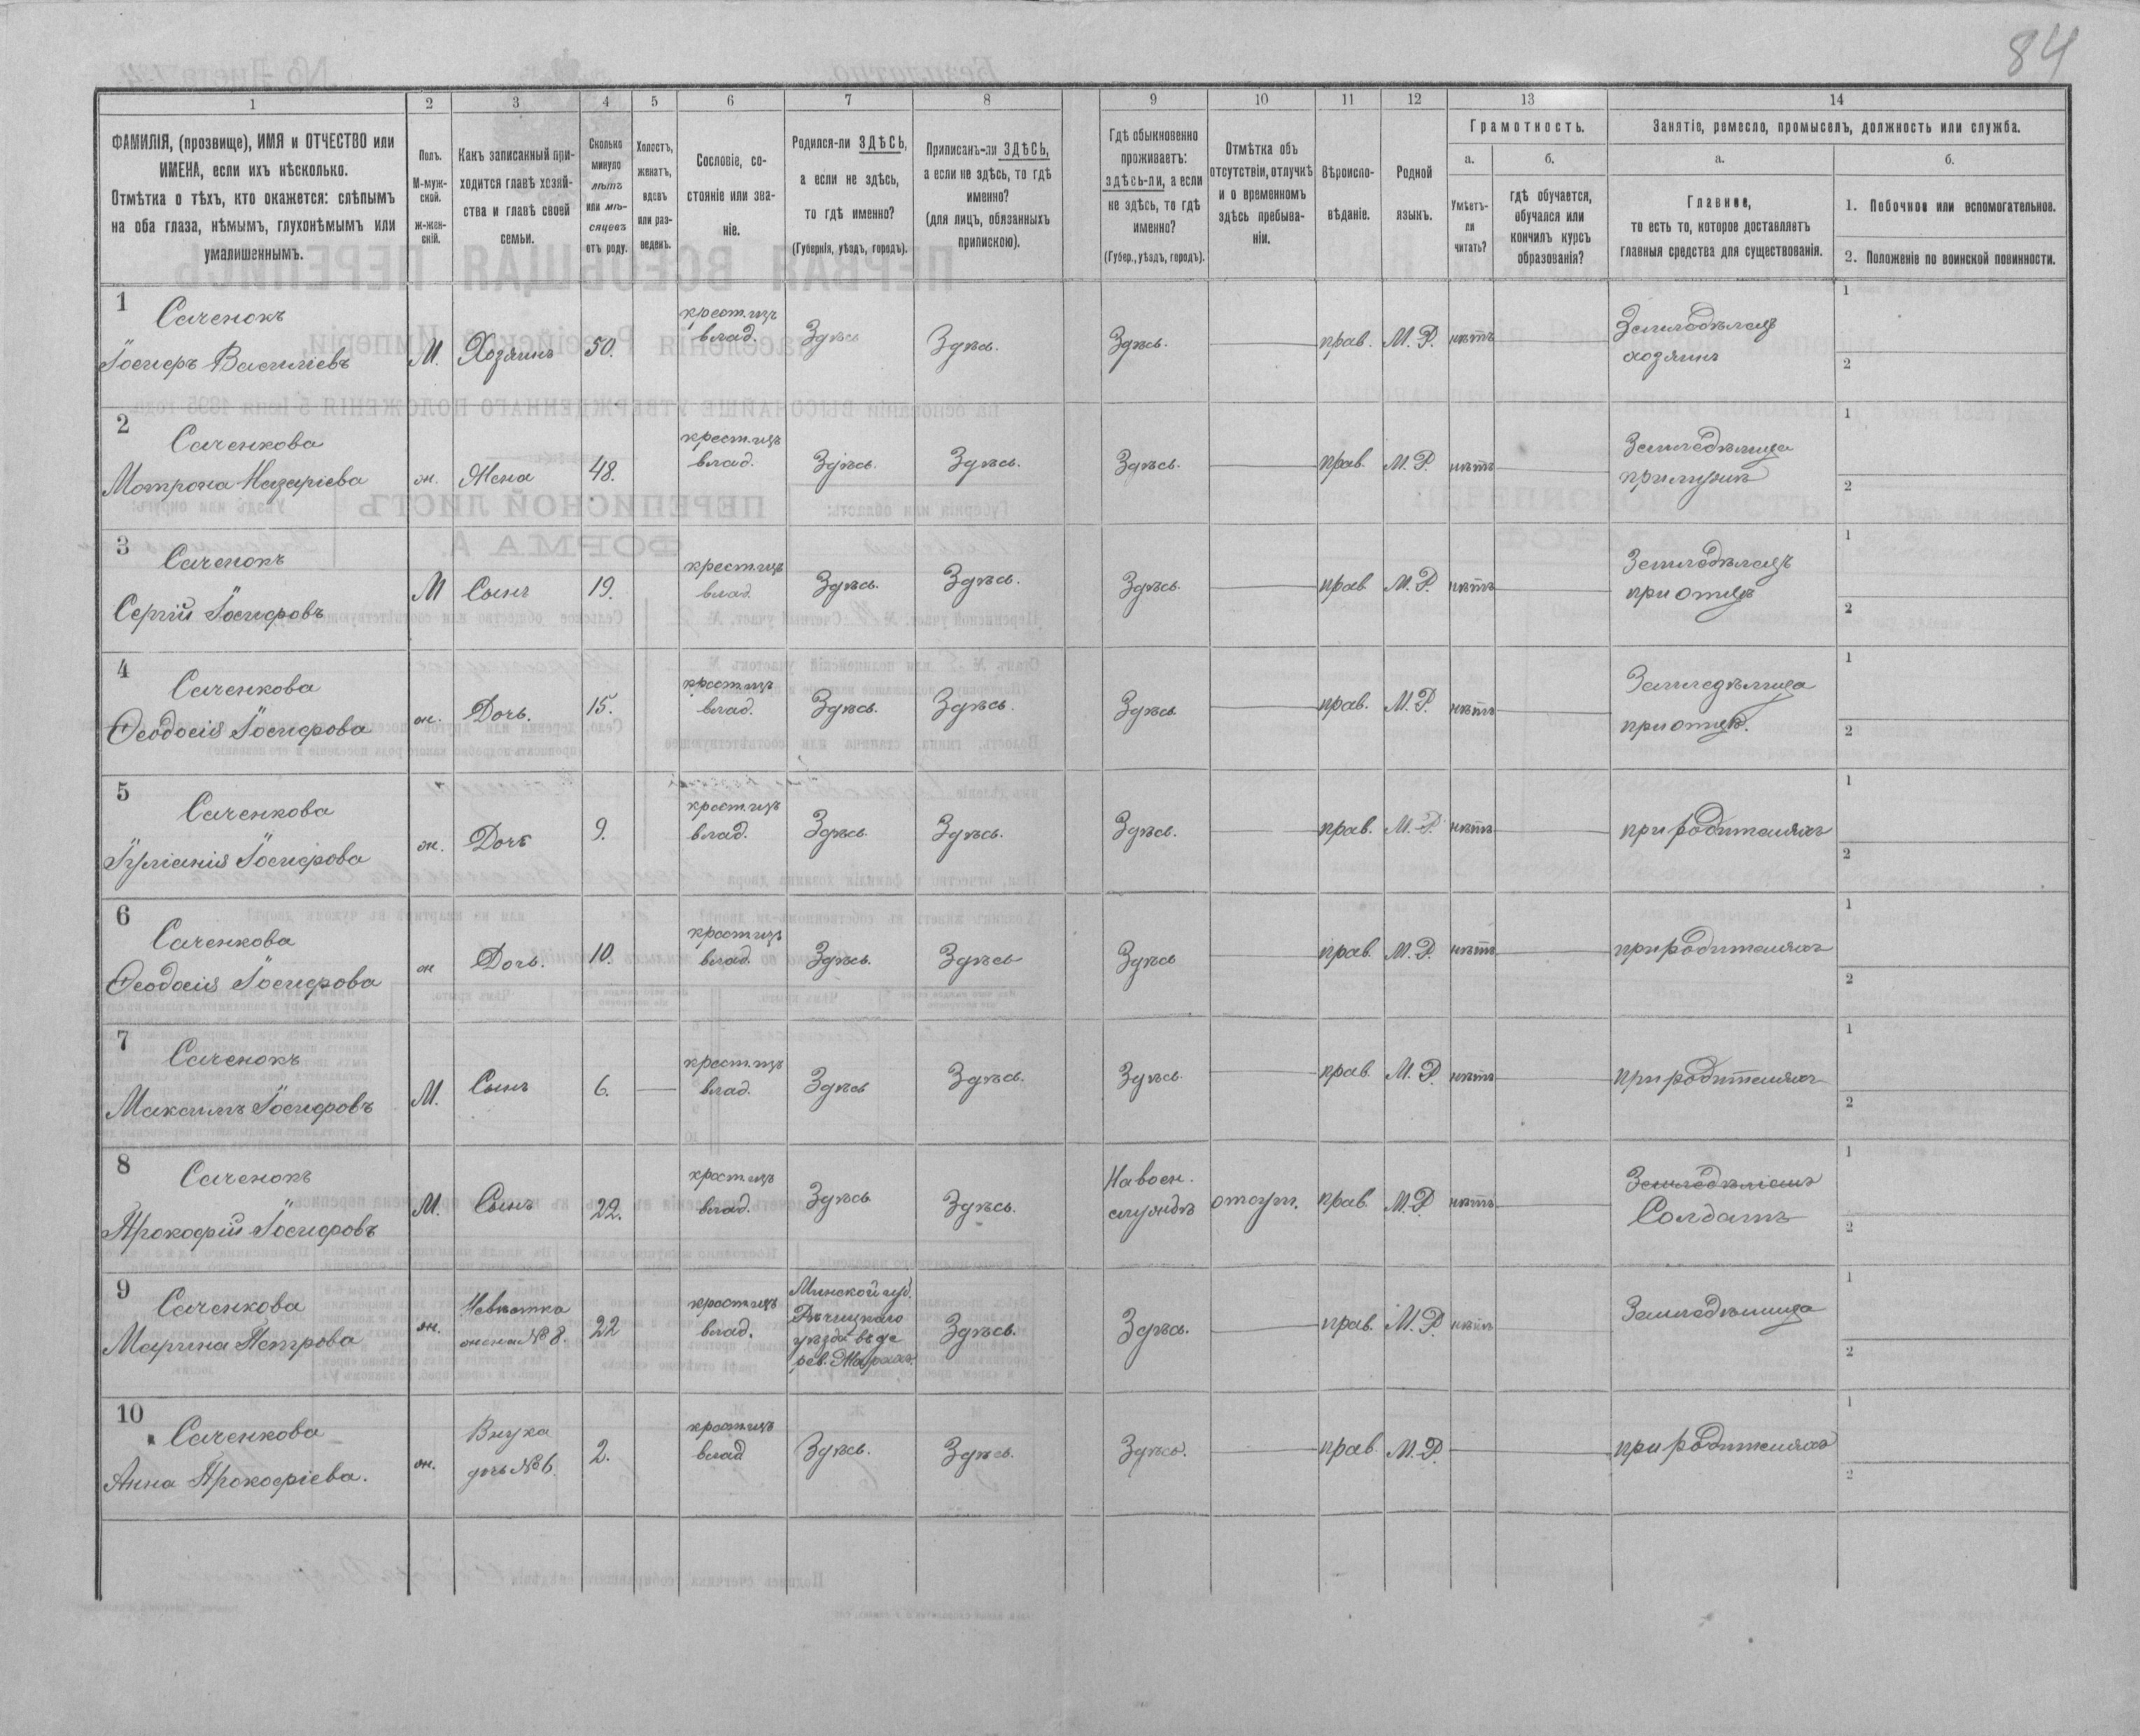 84
1 2 3 4 5 6 7 8 9 10 11 12 13 14
ФАМИЛІЯ, (прозвище), ИМЯ и ОТЧЕСТВО или
ИМЕНА, если ихъ нѣсколько.
Отмѣтка о тѣхъ, кто окажется: слѣпымъ
на оба глаза, нѣмымъ, глухонѣмымъ или
умалишеннымъ.
Полъ.
М-муж-
ской.
Ж-жен-
скій.
Какъ записанный при-
ходится главѣ хозяй-
ства и главѣ своей
семьи.
Сколько
минуло
лѣтъ
или мѣ-
сяцевъ
отъ роду.
Холостъ,
женатъ,
вдовъ
или раз-
веденъ.
Сословіе, со-
стояніе или зва-
ніе.
Родился-ли ЗДѢСЬ,
а если не здѣсь,
то гдѣ именно?
(Губернія, уѣздъ, городъ).
Приписанъ-ли ЗДѢСЬ,
а если не здѣсь, то гдѣ
именно?
(для лицъ, обязанныхъ
припискою).
Гдѣ обыкновенно
проживаетъ:
здѣсь-ли, а если
не здѣсь, то гдѣ
именно?
(Губер., уѣздъ, городъ).
Отмѣтка объ
отсутствіи, отлучкѣ
и о временномъ
здѣсь пребыва-
ніи.
Вѣроиспо-
вѣданіе.
Родной
языкъ.
Грамотность.
а.
Умѣетъ-
ли
читать?
б.
гдѣ обучается,
обучался или
кончилъ курсъ
образованія?
Занятіе, ремесло, промыселъ, должность или служба.
а.
Главное,
то есть то, которое доставляетъ
главныя средства для существованія.
б.
1. Побочное или вспомогательное.
2. Положеніе по воинской повинности.
1
Саченокъ
Іосифъ Василіевъ
М. Хозяинъ 50.
крест. изъ
влад.
Здѣсь Здѣсь. Здѣсь. прав. М. Р. нѣтъ
Земледѣлецъ
хозяинъ
1
2
2
Саченкова
Матрона Назаріева
ж. Жена 48.
крест. изъ
влад.
Здѣсь. Здѣсь. Здѣсь. прав. М. Р. нѣтъ
Земледѣлица
при мужѣ
1
2
3
Саченокъ
Сергій Іосифовъ
М Сынъ 19.
крест. изъ
влад.
Здѣсь. Здѣсь. Здѣсь. прав М. Р. нѣтъ
Земледѣлецъ
при отцѣ
1
2
4
Саченкова
Ѳеодосія Іосифова
ж. Дочь. 15.
крест. изъ
влад.
Здѣсь. Здѣсь. Здѣсь. прав. М. Р. нѣтъ
Земледѣлица
при отцѣ.
1
2
5
Саченкова
Іуліанія Іосифова
ж. Дочь 9.
крест. изъ
влад.
Здѣсь Здѣсь. Здѣсь. прав. М. Р. нѣтъ
при родителяхъ
1
2
6
Саченкова
Ѳеодосія Іосифова
ж Дочь. 10.
крест. изъ
влад.
Здѣсь. Здѣсь Здѣсь прав. М. Р. нѣтъ
при родителяхъ
1
2
7
Саченокъ
Максимъ Іосифовъ
М. Сынъ 6.
крест. изъ
влад.
Здѣсь Здѣсь. Здѣсь. прав. М. Р. нѣтъ
при родителяхъ
1
2
8
Саченокъ
Прокофій Іосифовъ
М. Сынъ 22.
крест. изъ
влад.
Здѣсь Здѣсь.
На воен.
службѣ
отсут. прав. М. Р нѣтъ
Солдатъ
1
2
9
Саченкова
Марина Петрова
ж.
Невѣстка
жена № 8.
22
крест. изъ
влад.
Минской губ.
Рѣчицкаго
уѣзда въ де
рев.
Здѣсь. Здѣсь. прав. М. Р. нѣтъ
Земледѣлица
1
2
10
Саченкова
Анна Прокофіева.
ж.
Внука
дочь № 6.
2.
крест. изъ
влад
Здѣсь. Здѣсь. Здѣсь. прав. М. Р.
при родителяхъ
1
2